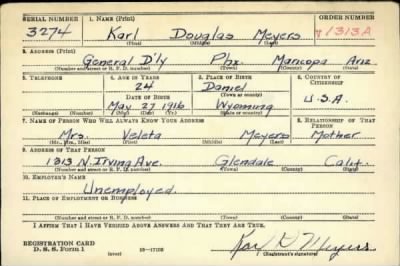 SERIAL NUMBER 1. NAME (Print) ORDER NUMBER
3274 Karl Douglas Meyers 1313A
(First) (Middle) (Last)
2. ADDRESS (Print)
General D'ly Phx. Maricopa Ariz.
(Number and street or R. F. D. number) (Town) (County) (State)
3. TELEPHONE 4. AGE IN YEARS 5. PLACE OF BIRTH 6. COUNTRY OF CITIZENSHIP
24 Daniel
DATE OF BIRTH (Town or county)
May 27 1916 Wyoming U.S.A.
(Exchange) (Number) (Mo.) (Day) (Yr.) (State or country)
7. NAME OF PERSON WHO WILL ALWAYS KNOW YOUR ADDRESS 8. RELATIONSHIP OF THAT PERSON
Mrs. Veleta Meyers Mother
(Mr., Mrs., Miss) (First) (Middle) (Last)
9. ADDRESS OF THAT PERSON
1313 N. Irving Ave. Glendale Calif.
(Number and street or R. F. D. number) (Town) (County) (State)
10. EMPLOYER'S NAME
Unemployed.
11. PLACE OF EMPLOYMENT OR BUSINESS
(Number and street or R. F. D. number) (Town) (County) (State)
I AFFIRM THAT I HAVE VERIFIED ABOVE ANSWERS AND THAT THEY ARE TRUE.
REGISTRATION CARD
D. S. S. Form 1 (over) 16—17105 Karl D Meyers
(Registrant's signature)